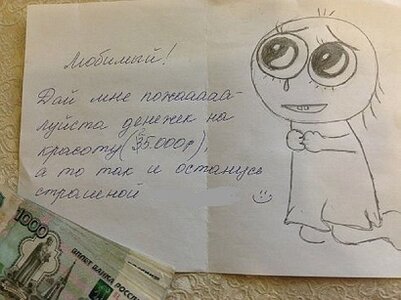 Любимый!
Дай мне пожааааа-
луйста денежек на
красоту (35.000р),
а то так и останусь
страшной
1000
БИЛЕТ БАНКА РОССИИ